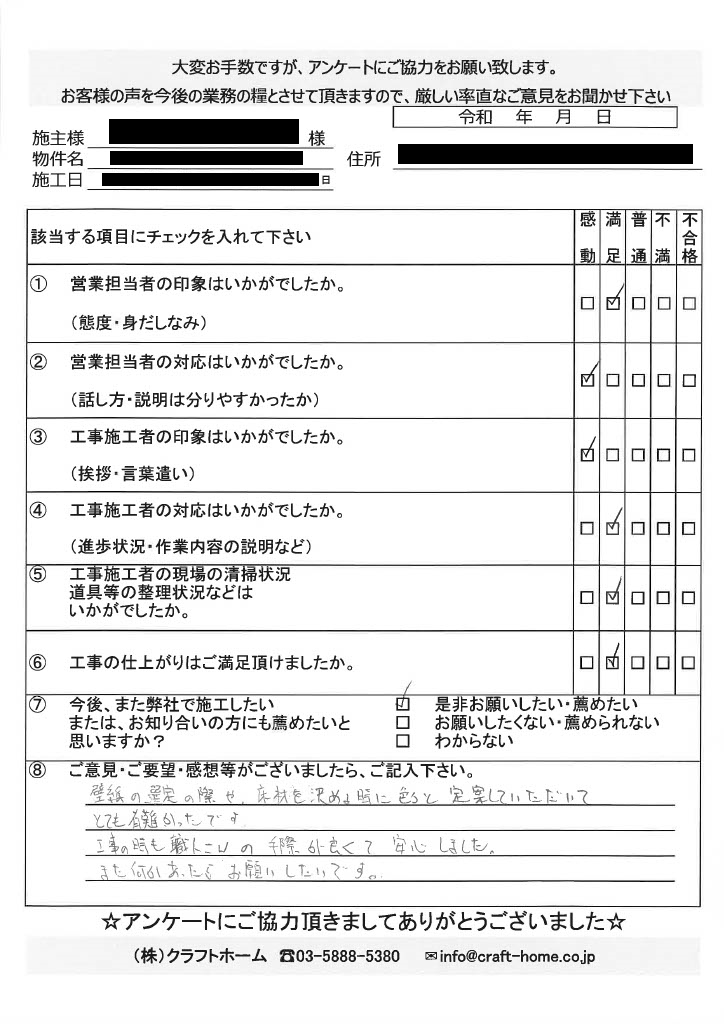 大変お手数ですが、アンケートにご協力をお願い致します。
お客様の声を今後の業務の糧とさせて頂きますので、厳しい率直なご意見をお聞かせ下さい
令和 年 月 日
施主様 様
物件名 住所
施工日 日
該当する項目にチェックを入れて下さい 感動 満足 普通 不満 不合格
① 営業担当者の印象はいかがでしたか。
（態度・身だしなみ） □ ☑ □ □ □
② 営業担当者の対応はいかがでしたか。
（話し方・説明は分りやすかったか） ☑ □ □ □ □
③ 工事施工者の印象はいかがでしたか。
（挨拶・言葉遣い） ☑ □ □ □ □
④ 工事施工者の対応はいかがでしたか。
（進歩状況・作業内容の説明など） □ ☑ □ □ □
⑤ 工事施工者の現場の清掃状況
道具等の整理状況などは □ ☑ □ □ □
いかがでしたか。
⑥ 工事の仕上がりはご満足頂けましたか。 □ ☑ □ □ □
⑦ 今後、また弊社で施工したい ☑ 是非お願いしたい・薦めたい
または、お知り合いの方にも薦めたいと □ お願いしたくない・薦められない
思いますか？ □ わからない
⑧ ご意見・ご要望・感想等がございましたら、ご記入下さい。
壁紙の選定の際や、床材を決める時に色々と定案していただいて
とても有難かったです
工事の時も職人さんの手際が良くて安心しました。
また何かあったらお願いしたいです。
☆アンケートにご協力頂きましてありがとうございました☆
（株）クラフトホーム ☎03-5888-5380 ✉info@craft-home.co.jp